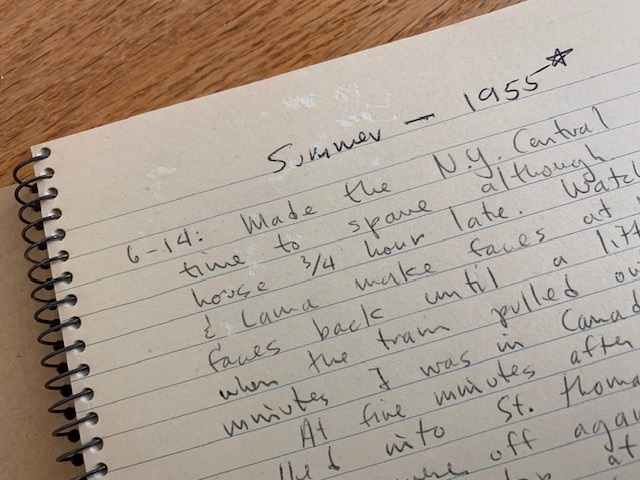 Summer - 1955☆
6-14: Made the N.Y. Central
time to spare although
house 3/4 hour late.
& Lama make faces at
faces back until a
when the train pulled
minutes I was in
At five minutes after
into St. Thoma
off
at